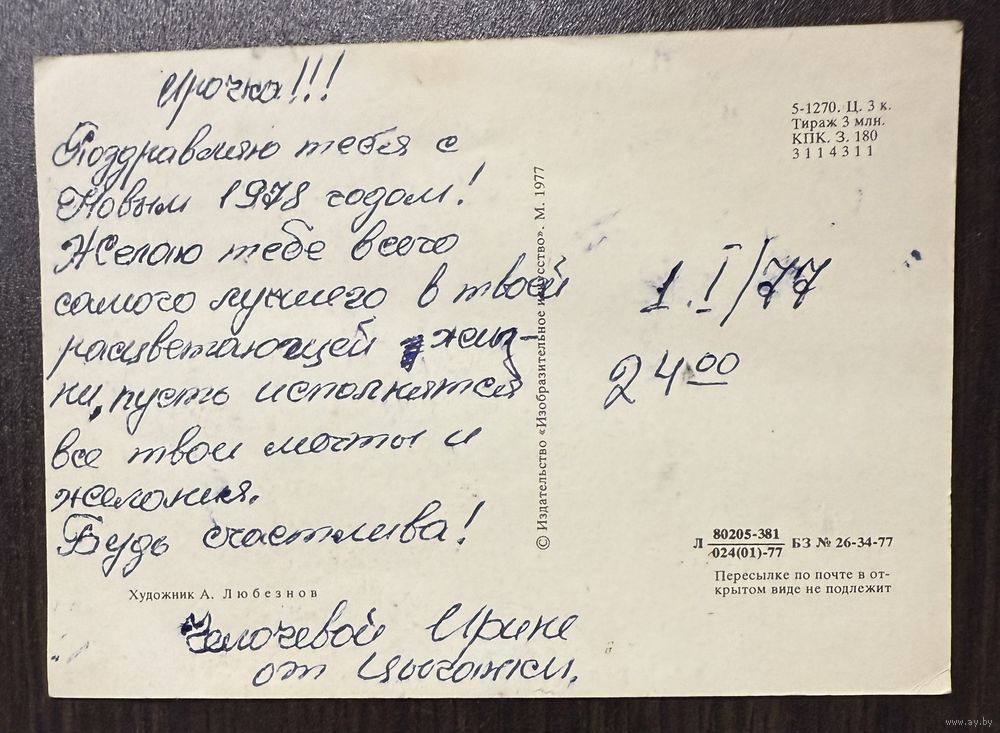 Ирочка!!!
Поздравляю тебя с
Новым 1978 годом!
Желаю тебе всего
самого лучшего в твоей
расцветающей жиз-
ни, пусть исполнятся
все твои мечты и
желания.
Будь счастлива!
Художник А. Любезнов
Ирине
от Цыганки.
© Издательство «Изобразительное искусство». М. 1977
5-1270. Ц. 3 к.
Тираж 3 млн.
КПК. З. 180
3114311
1.I/77
24 00
Л 80205-381
024(01)-77 БЗ № 26-34-77
Пересылке по почте в от-
крытом виде не подлежит
www.ay.by